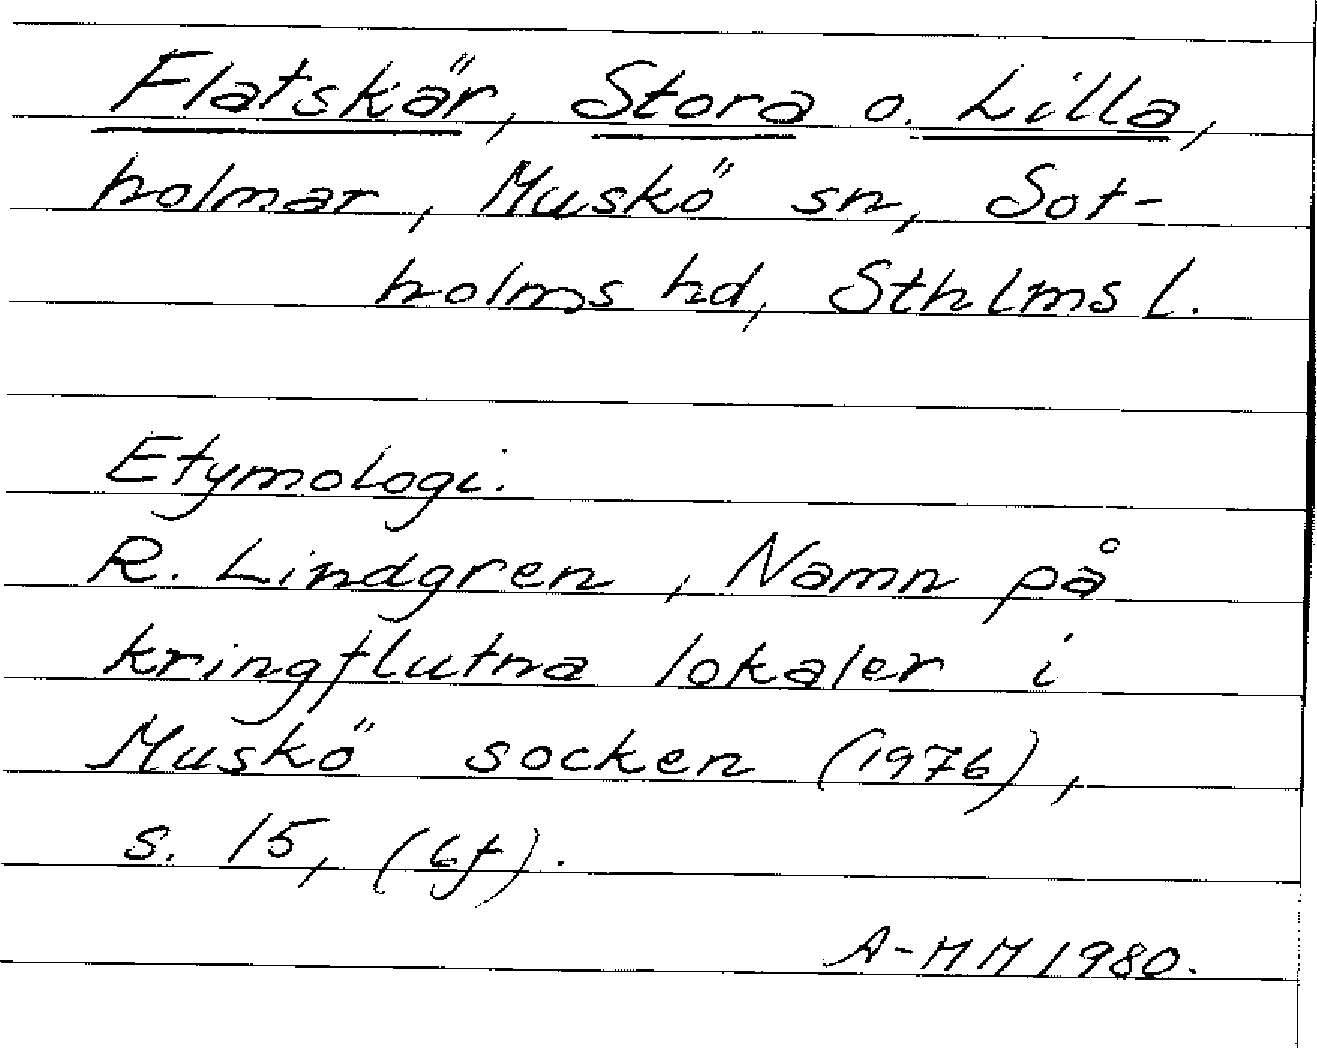 Flatskär, Stora o. Lilla,
holmar, Muskö sn, Sot-
holms hd, Sthlms l.
Etymologi:
R. Lindgren, Namn på
kringflutna lokaler i
Muskö socken (1976),
s. 15, (6f).
A-MM 1980.